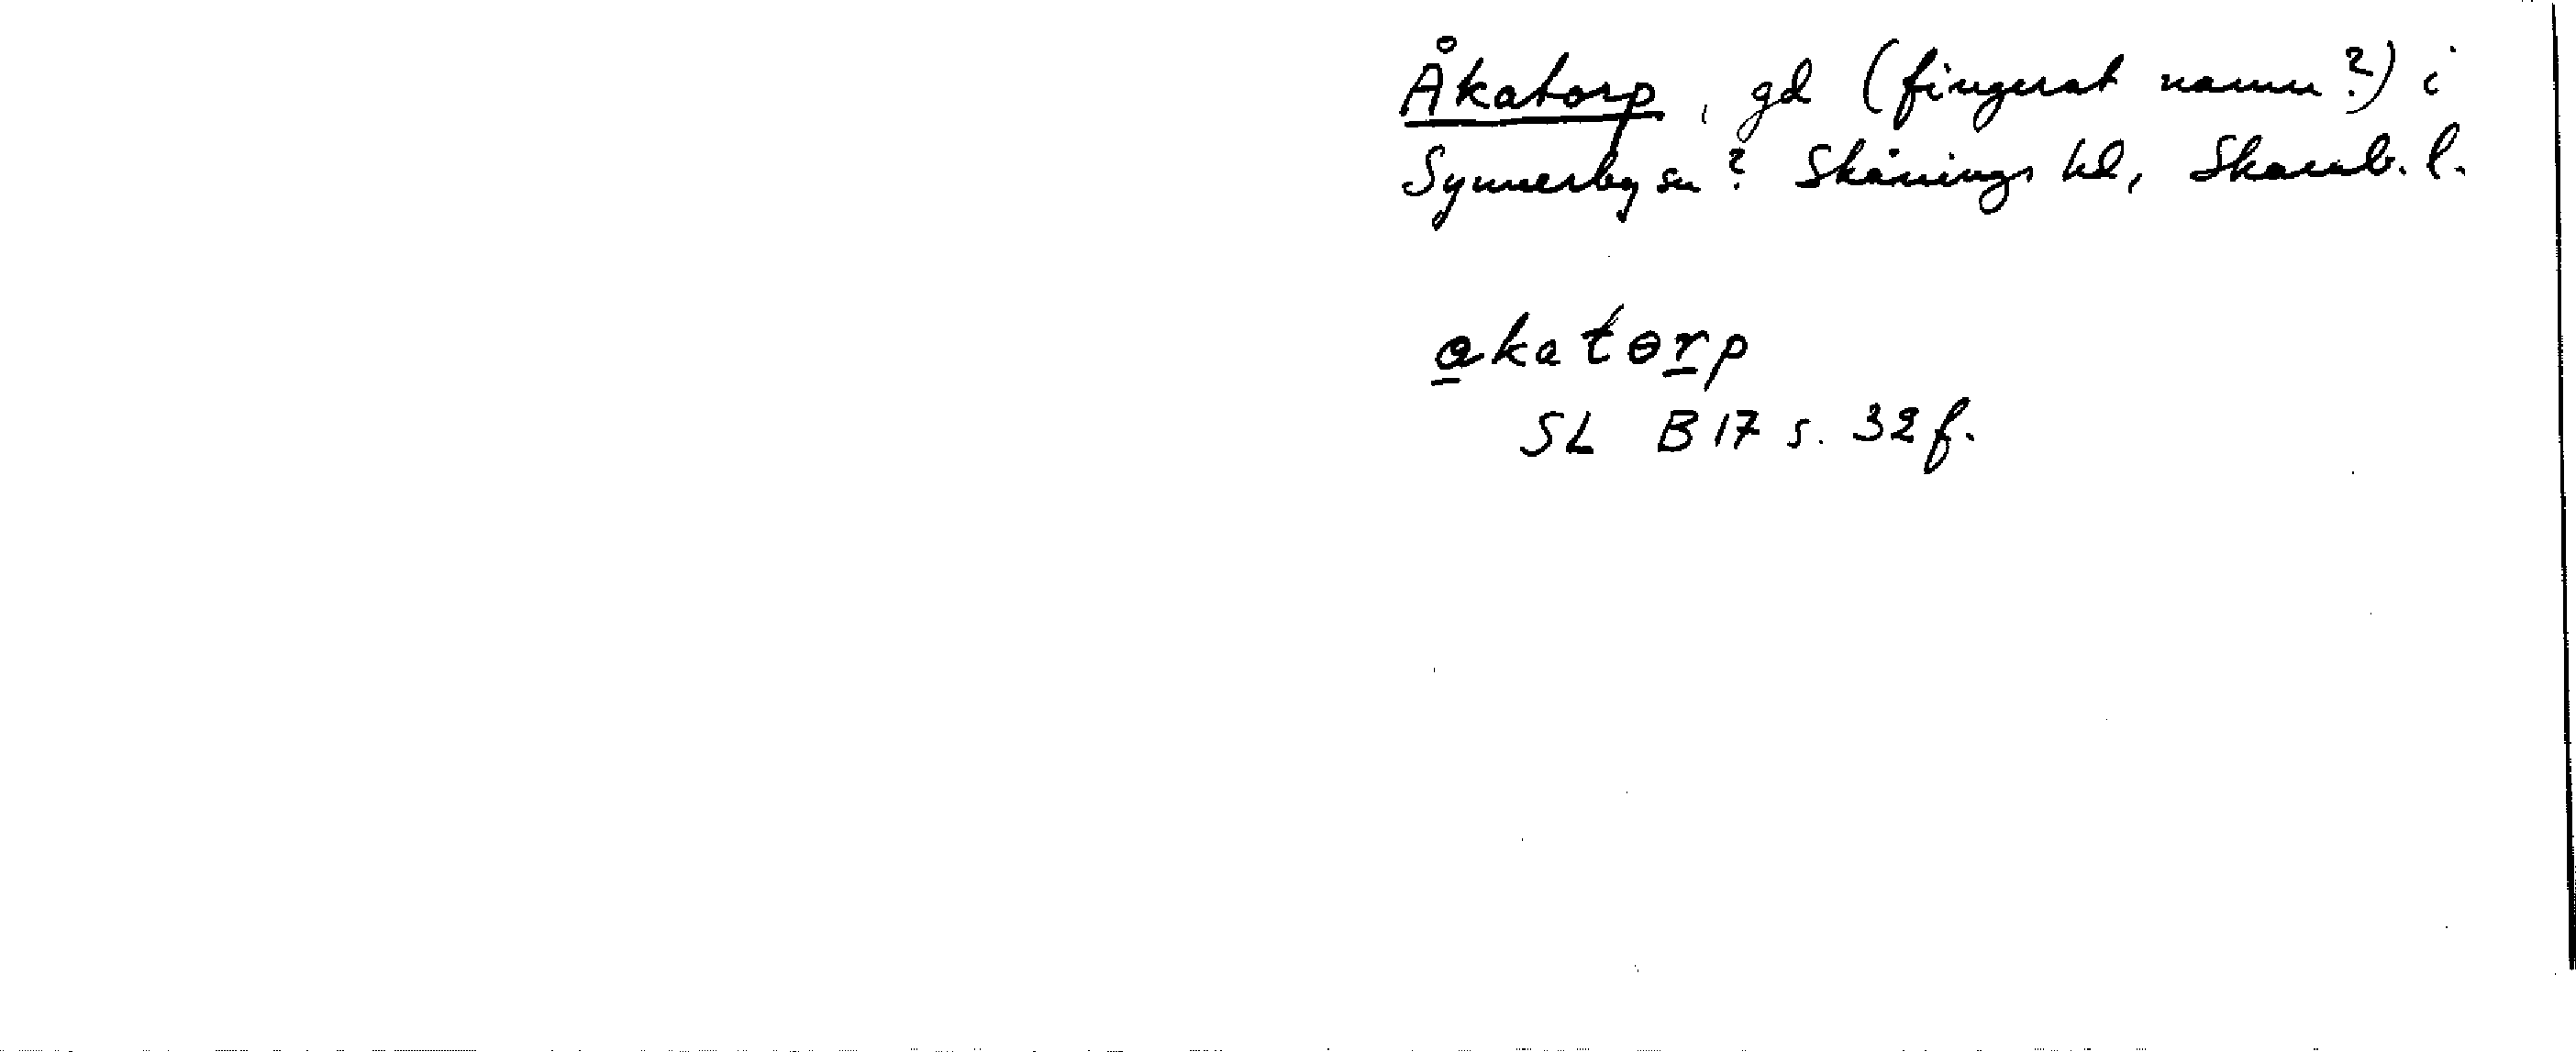 Åkatorp, gd (fingerat namn?) i
Synnerby sn? Skånings hd, Skarab. l.
akatɵrp
SL B17 s. 32 f.